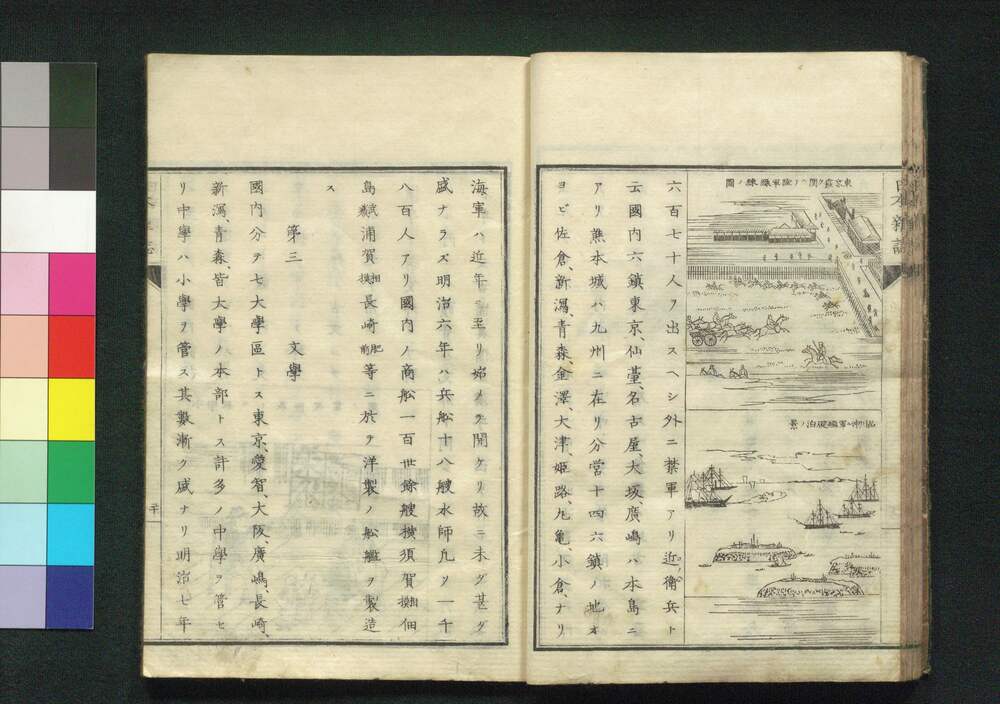 東京霞ヶ關ニテ陸軍操練ノ圖
品川沖軍艦碇泊ノ景
六百七十人ヲ出スヘシ外ニ禁軍アリ近衛兵ト
云國内六鎮東京、仙䑓、名古屋、大坂、廣嶋ハ本島ニ
アリ熊本城ハ九州ニ在リ分営十四六鎮ノ地オ
ヨビ佐倉、新潟、青森、金澤、大津、姫路、丸亀、小倉、ナリ
海軍ハ近年ニ至リ始メテ開ケリ故ニ未ダ甚ダ
盛ナラズ明治六年ハ兵船十八艘水師凡ソ一千
八百人アリ國内ノ商船一百丗餘艘横須賀相摸佃
島武藏浦賀相摸長崎肥前等ニ於テ洋製ノ船艦ヲ製造
ス
第三 文學
國内分テ七大學區トス東京、愛智、大阪、廣嶋、長崎、
新潟、青森、皆大學ノ本部トス許多ノ中學ヲ管セ
リ中學ハ小學ヲ管ス其數漸ク盛ナリ明治七年